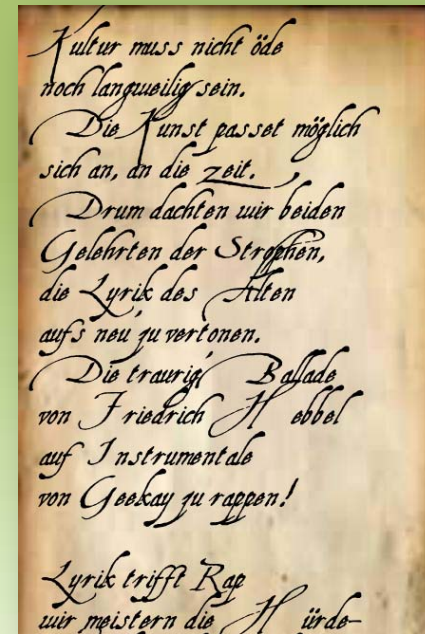 Kultur muss nicht öde
noch langweilig sein.
Die Kunst passet möglich
sich an, an die zeit.
Drum dachten wir beiden
Gelehrten der Strophen,
die Lyrik des Alten
auf's neu zu vertonen.
Die traurig' Ballade
von Friedrich Hebbel
auf Instrumentale
von Geekay zu rappen!
Lyrik trifft Rap
wir meistern die Hürde-